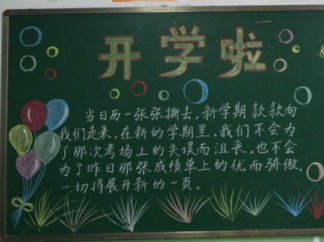 开学啦
当日历一张张撕去，新学期款款向
我们走来，在新的学期里，我们不会为
了那次考场上的失误而沮丧，也不会
为了昨日那张成绩单上的优而骄傲，
一切将展开新的一页。